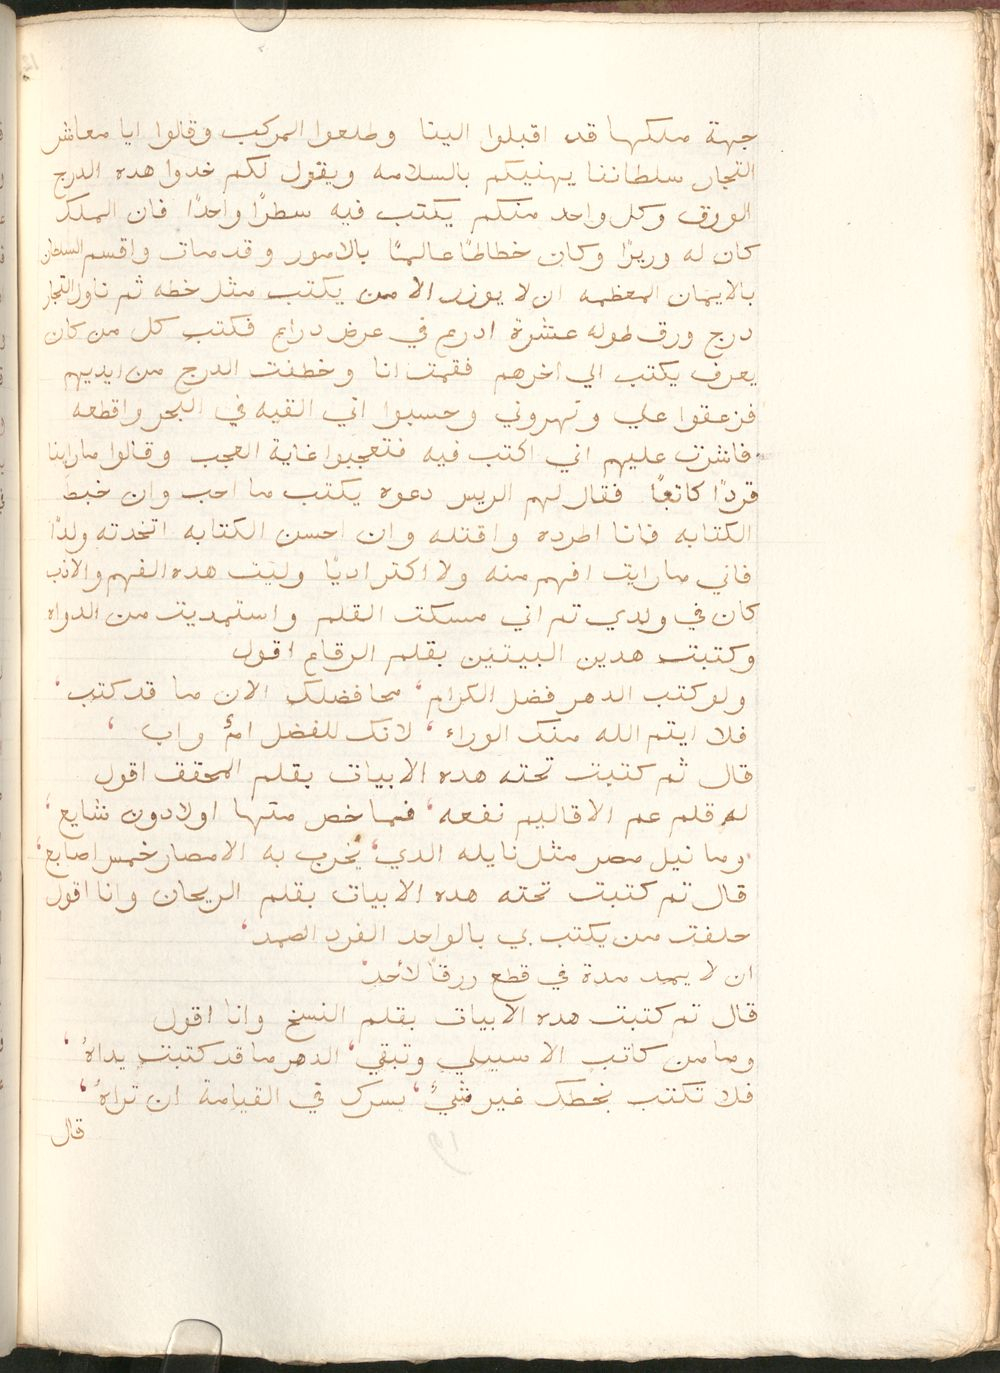 جهة ملكها قد اقبلوا الينا وطلعوا المركب وقالوا ايا معاشر
التجار سلطاننا يهنيكم بالسلامه ويقول لكم خدوا هده الدرج
الورق وكل واحد منكم يكتب فيه سطرًا واحدًا فان الملك
كان له وريرًا وكان خطاطًا عالمًا بالامور وقد مات واقسم السلطان
بالايمان المعظمه ان لا يوزر الا من يكتب مثل خطه ثم ناول التجار
درج ورق طوله عشرة ادرع في عرض دراع فكتب كل من كان
يعرف يكتب الي اخرهم فقمت انا وخطفت الدرج من ايديهم
فزعقوا علي ونهروني وحسبوا اني القيه في البحر واقطعه
فاشرت عليهم اني اكتب فيه فتعجبوا غاية العجب وقالوا ما راينا
قردًا كاتبًا فقال لهم الريس دعوه يكتب ما احب وان خبط
الكتابه فانا اطرده واقتله وان احسن الكتابه اتخدته ولدًا
فاني ما رايت افهم منه ولا اكتر اديًا وليت هده الفهم والادب
كان في ولدي تم اني مسكت القلم واستمديت من الدواه
وكتبت هدين البيتين بقلم الرقاع اقول
ولو كتب الدهر فضل الكرام، محا فضلك الان ما قد كتب،
فلا ايتم الله منك الوراء، لانك للفضل امٌ واب،
قال ثم كتبت تحته هده الابيات بقلم المحقق اقول
له قلم عم الاقاليم نفعه، فما خص منها اولا دون شايع،
وما نيل مصر مثل نايله الدي، يخرب به الامصار خمس اصابع،
قال تم كتبت تحته هده الابيات بقلم الريحان وانا اقول
حلفت من يكتب بي بالواحد الفرد الصمد،
ان لا يمد مدة في قطع ررقًا لاحد،
قال تم كتبت هده الابيات بقلم النسخ وانا اقول
وما من كاتب الا سيبلي وتبقي، الدهر ما قد كتبت يداهُ،
فلا تكتب بخطك غير شيٍ، يسرك في القيامة ان تراهُ،
قال